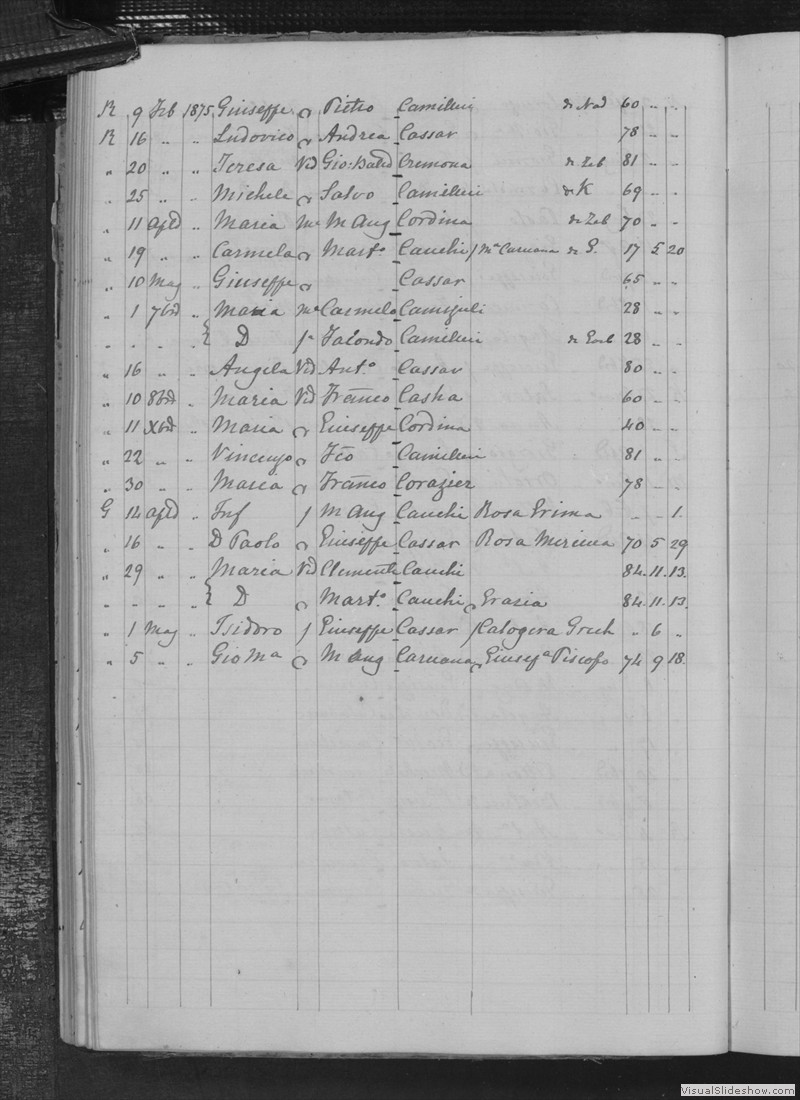 R 9 Feb 1875 Giuseppe Pietro Camilleri de Nad 60 " "
R 16 " " Ludovico Andrea Cassar 78 " "
" 20 " " Teresa Vid Gio: Batta Cremona de Zeb 81 " "
" 25 " " Michele Salvo Camilleri de K 69 " "
" 11 " Maria M Aug Cordina de Zeb 70 " "
" 19 " " Carmela Mart.o Cauchi Caruana de 17 5 20
" 10 Mag " Giuseppe Cassar 65 " "
" 1 7bre " Maria Carmelo 28 " "
" " " " { D Camilleri 28 " "
" 16 " " Angela Vid Ant.o Cassar 80 " "
" 10 8bre " Maria Vid Franco Casha 60 " "
" 11 Xbre " Maria Giuseppe Cordina 40 " "
" 22 " " Vincenzo Camilleri 81 " "
" 30 " " Maria Franco 78 " "
G 14 " Inf f M Aug Cauchi Rosa " " 1
" 16 " " D Paolo Giuseppe Cassar Rosa 70 5 29
" 29 " " Maria Vid Clemente Cauchi 84 . 11 . 13.
" " " " { D Mart.o Cauchi Grazia 84 . 11 . 13.
" 1 Mag " Isidoro f Giuseppe Cassar Calogera Grech " 6 "
" 5 " " Gio Ma M Aug Caruana 74 9 18.
VisualSlideshow.com